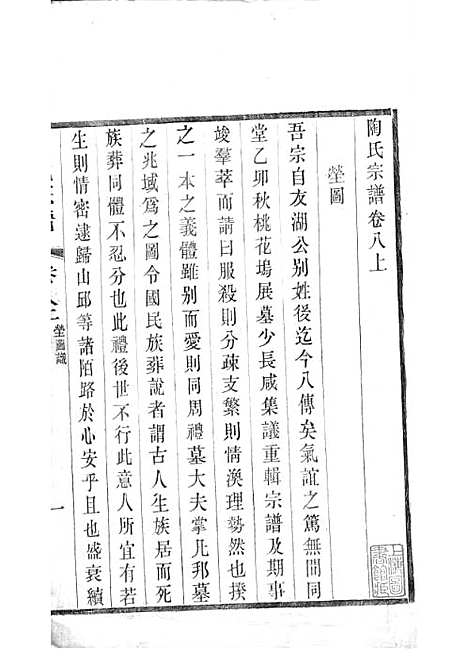 陶氏宗譜卷八上
塋圖
吾宗自友湖公別姓後迄今八傳矣氣誼之篤無間同
堂乙卯秋桃花塢展墓少長咸集議重輯宗譜及期事
竣羣萃而請曰服殺則分疏支繁則情渙理勢然也揆
之一本之義體雖別而愛則同周禮墓大夫掌凡邦墓
之兆域爲之圖令國民族葬說者謂古人生族居而死
族葬同體不忍分也此禮後世不行此意人所宜有若
生則情密逮歸山邱等諸陌路於心安乎且也盛衰續
塋圖識
一